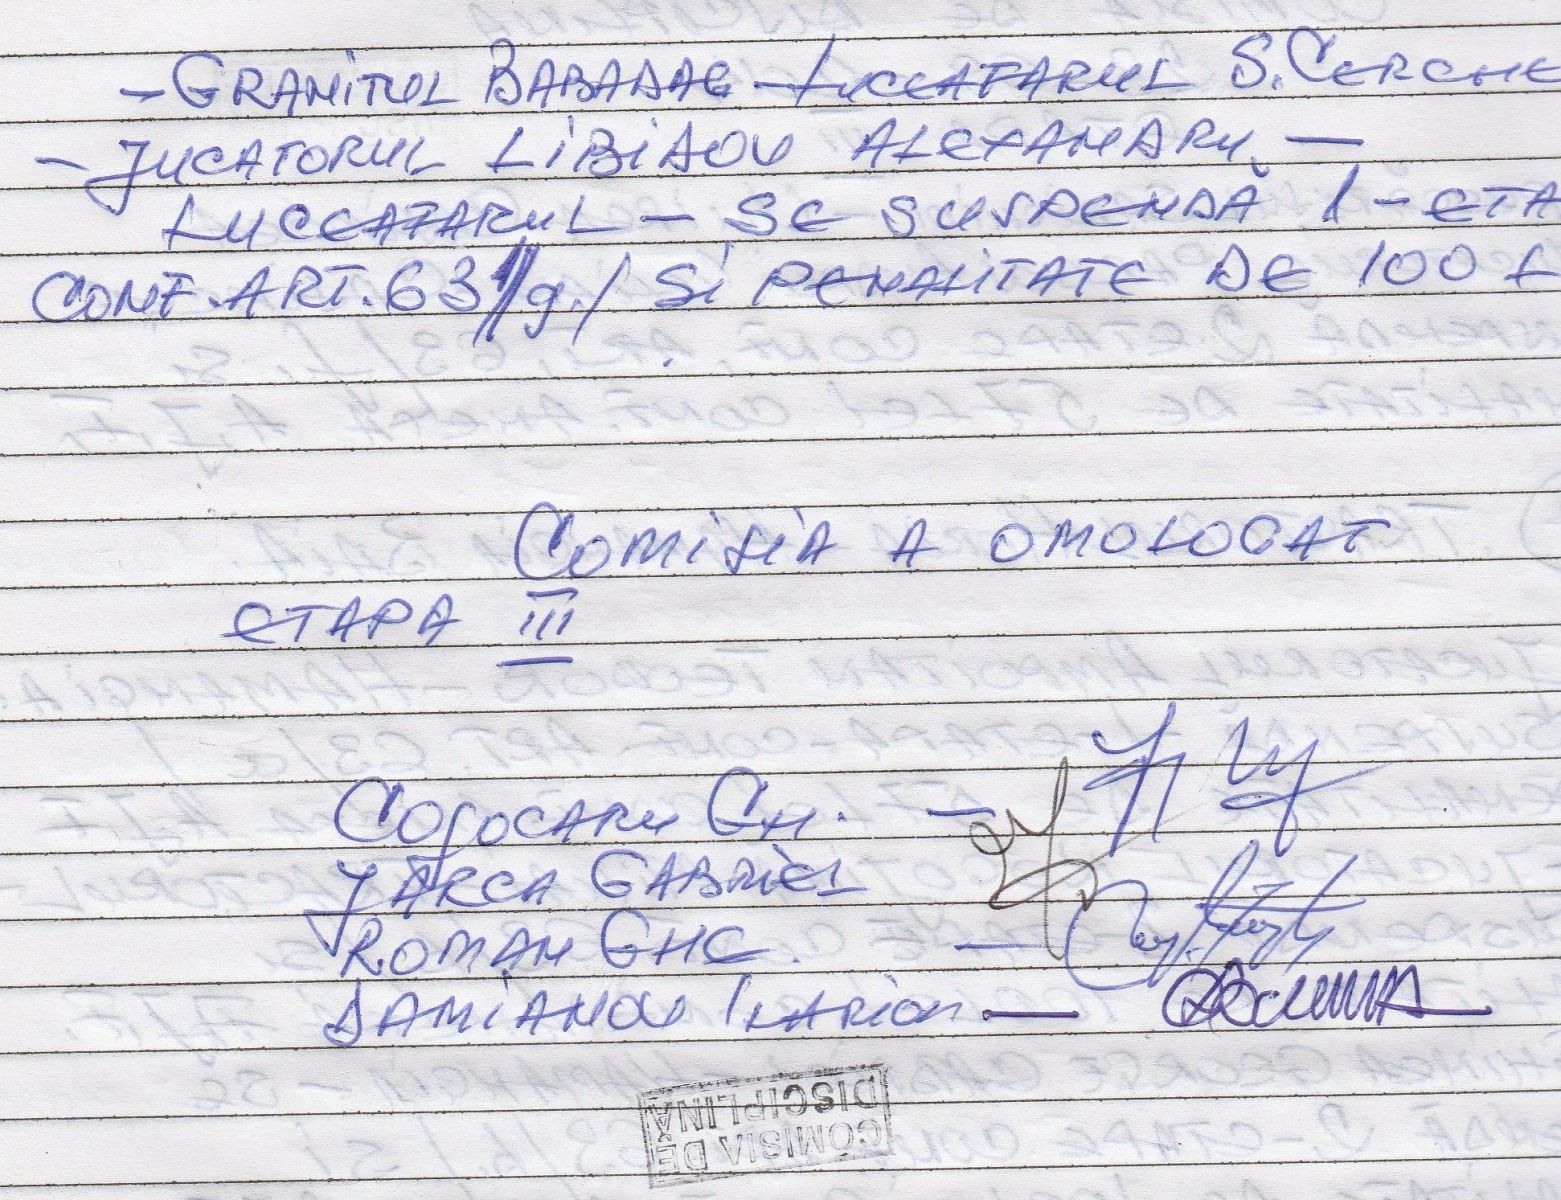 - GRANITUL BABADAG - LUCEAFARUL S. CERCHE
- JUCATORUL LIBIADOV ALEXANDRU -
LUCEAFARUL - SE SUSPENDĂ 1 - ETA
CONF. ART. 63/g./ SI PENALITATE DE 100 L
COMISIA A OMOLOGAT
ETAPA III
COJOCARU GH. -
JÂRCA GABRIEL
ROMAN GHE. -
DAMIANOV ILARION -
COMISIA DE
DISCIPLINĂ